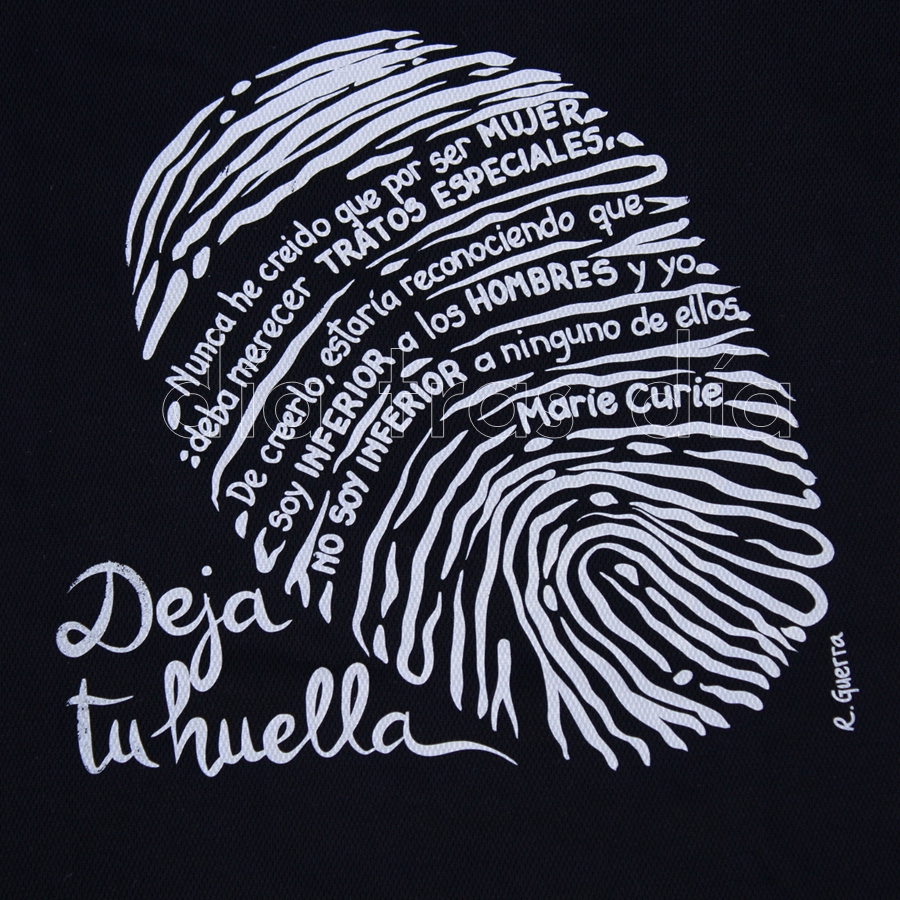 Nunca he creido que por ser MUJER
deba merecer TRATOS ESPECIALES.
De creerlo, estaría reconociendo que
soy INFERIOR a los HOMBRES y yo
NO SOY INFERIOR a ninguno de ellos.
Marie Curie
Deja
tu huella
R. Guerra
dia tras día